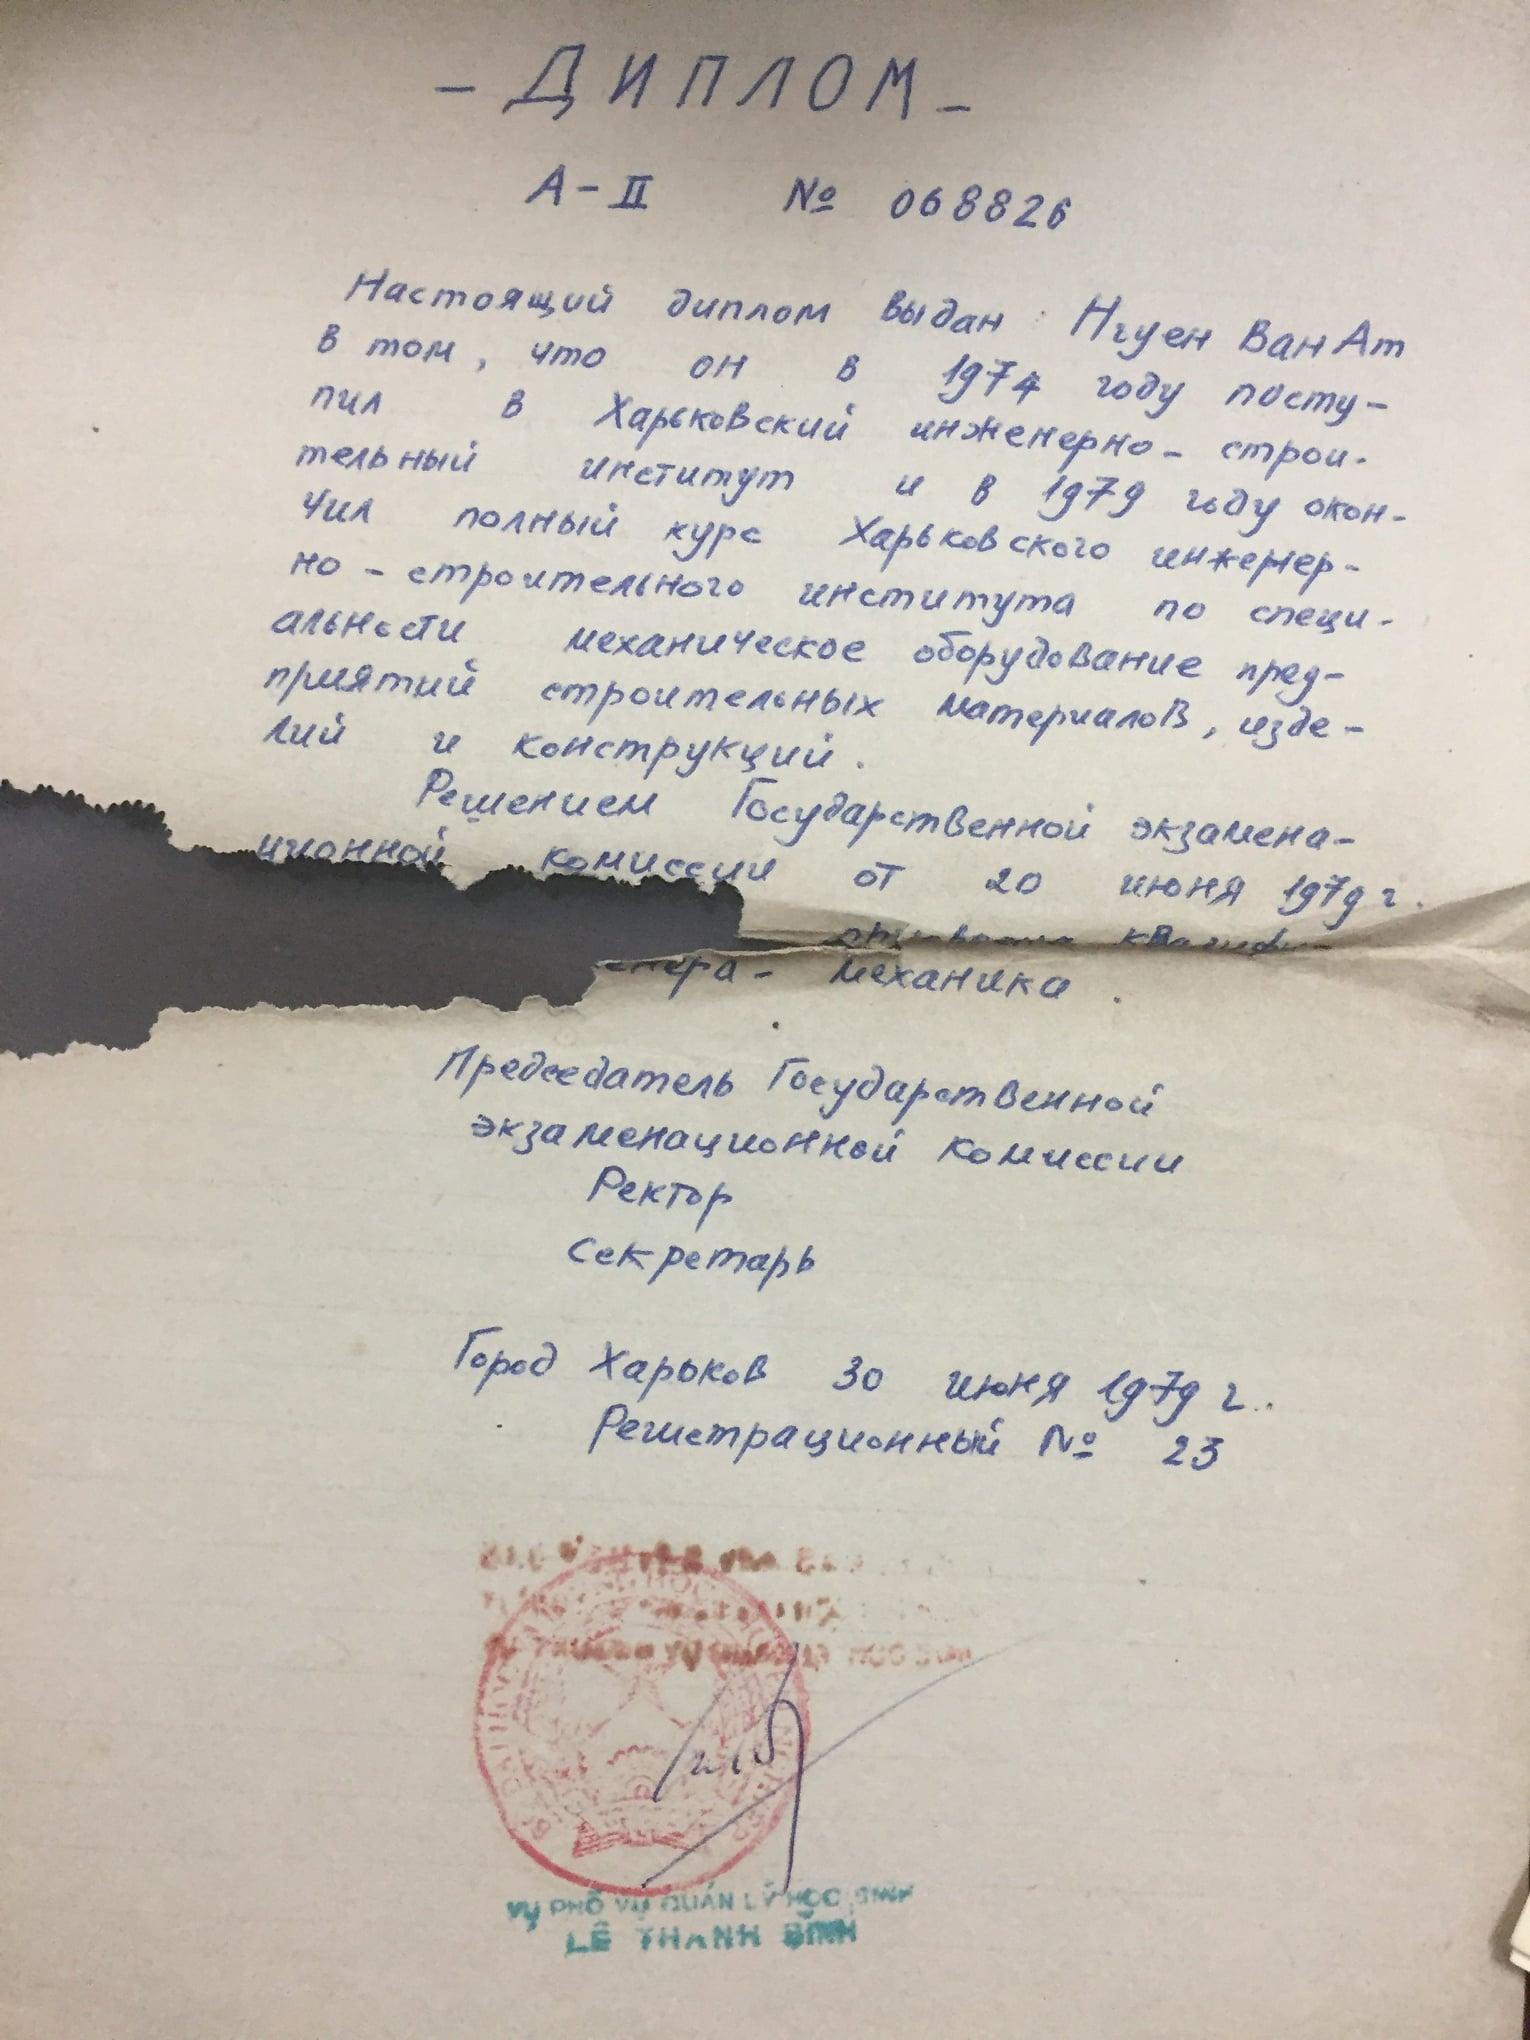 - ДИПЛОМ -
А-II № 068826
Настоящий диплом выдан Нгуен Ван Ат
в том, что он в 1974 году посту-
пил в Харьковский инженерно-строи-
тельный институт и в 1979 году окон-
чил полный курс Харьковского инженер-
но-строительного института по специ-
альности механическое оборудование пред-
приятий строительных материалов, изде-
лий и конструкций.
Решением Государственной экзамена-
ционной комиссии от 20 июня 1979 г.
механика.
Председатель Государственной
экзаменационной комиссии
Ректор
Секретарь
Город Харьков 30 июня 1979 г.
Регистрационный № 23
VỤ PHÓ VỤ QUẢN LÝ HỌC SINH
LÊ THANH BÌNH